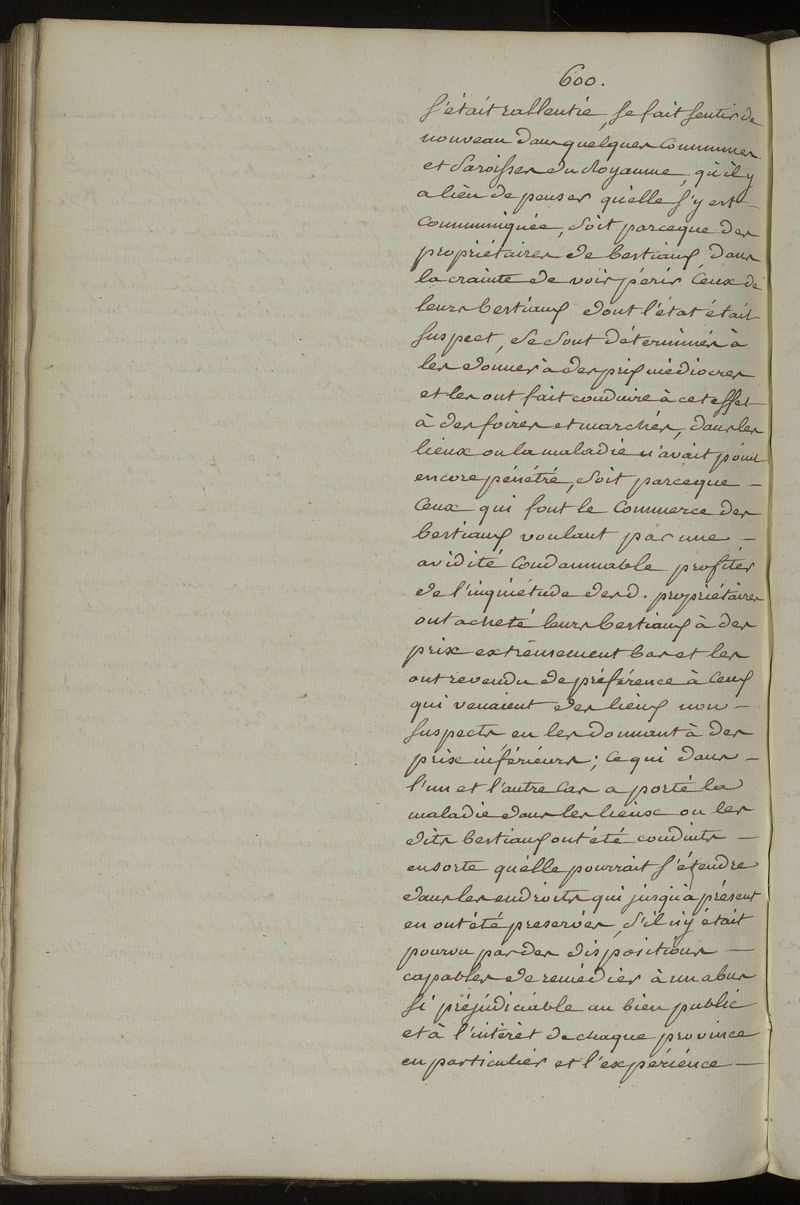 600.
s'était rallentie, se fait sentir de
nouveau dans quelques communes
et Paroisses du Royaume, qu'il y
a lièu de penser qu'elle s'y est
communiquée, soit parceque des
propriétaires de bestiaux, dans
la crainte de voir périr ceux de
leurs bestiaux dont l'état était
suspect, se sont déterminés à
les donner à des prix médiocres
et les ont fait conduire à cet effet
à des foires et marchés, dans les
lieux ou la maladie n'avait point
encore pénétré, soit parceque –
ceux qui font le commerce des
bestiaux voulant par une –
avidité condamnable profiter
de l'inquiétude desd. propriétaires
ont acheté leurs bestiaux à des
prix extrêmement bas et les
ont revendu de préférence à ceux
qui venaient des lieux non –
suspects en les donnant à des
prix inférieurs; ce qui dans –
l'un et l'autre cas a porté la
maladie dans les lieux ou les
dits bestiaux ont été conduits –
ensorte qu'elle pourrait s'étendre
dans les endroits qui jusqu'à présent
en ont été preservés, s'il n'y était
pourvu par des dispositions –
capables de remédier à un abus
si préjudiciable au bien public
et à l'intérêt de chaque province
en particulier et l'expérience –